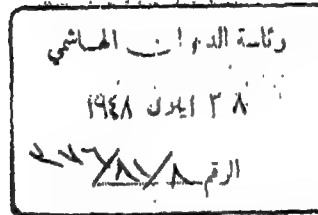 رئاسة الديوان الهاشمي
٨ ٣ ايلول ١٩٤٨
الرقم ٨/٨٧/